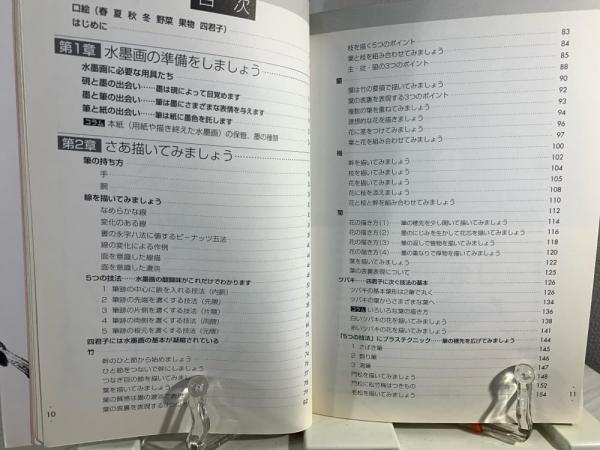 目次
口絵（春 夏 秋 冬 野菜 果物 四君子）
はじめに
第1章 水墨画の準備をしましょう
水墨画に必要な用具たち
硯と墨の出会い……墨は硯によって目覚めます
墨と筆の出会い……筆は墨にさまざまな表情を与えます
筆と紙の出会い……筆は紙に墨色を託します
コラム 本紙（用紙や描き終えた水墨画）の保管、墨の種類
第2章 さあ描いてみましょう
筆の持ち方
手
腕
線を描いてみましょう
なめらかな線
変化のある線
書の永字八法に値するピーナッツ五法
線の変化による作例
面を意識した線描
面を意識した濃淡
5つの技法……水墨画の醍醐味がこれだけでわかります
1 筆跡の中心に隈を入れる技法（内隈）
2 筆跡の先端を濃くする技法（先隈）
3 筆跡の片側を濃くする技法（片隈）
4 筆跡の両側を濃くする技法（両隈）
5 筆跡の根元を濃くする技法（元隈）
四君子には水墨画の基本が凝縮されている
竹
幹のひと節から始めましょう
ひと節をつないで幹にしましょう
つなぎ目の節を描いてみましょう
葉を描いてみましょう
葉の質感は墨の濃淡で表
葉の表裏を表現する3つの
10
83
枝を描く5つのポイント 84
葉と枝を組み合わせてみましょう 85
主・従・脇の3つのポイント 88
蘭 90
葉は竹の要領で描いてみましょう 92
葉の表裏を表現する3つのポイント 93
複数の葉を重ねてみましょう 94
理想的な花を描きましょう 96
花に茎をつけてみましょう 97
葉と花を組み合わせてみましょう 100
梅 102
幹を描いてみましょう 104
枝を描いてみましょう 105
花を描いてみましょう 107
花に枝を添えましょう 108
花と枝と幹を組み合わせてみましょう 110
菊 112
花の描き方（1）……筆の穂先を少し開いて描いてみましょう 114
花の描き方（2）……墨のにじみを生かして花芯を描いてみましょう 116
花の描き方（3）……筆の返しで管物を描いてみましょう 118
花の描き方（4）……筆の重なりで厚物を描いてみましょう 120
葉を描いてみましょう 122
葉の表裏表現について 125
ツバキ……四君子に次ぐ技法の基本 126
ツバキの基本葉形は2筆で丸く 126
ツバキの葉からさまざまな葉へ 131
コラム いろいろな葉の描き方 134
白いツバキの花を描いてみましょう 138
赤いツバキの花を描いてみましょう 141
「5つの技法」にプラステクニック……筆の穂先を広げてみましょう 144
1 さばき筆 145
2 割り筆 146
3 泡筆 147
門松を描いてみましょう 148
門松に松竹梅はつきもの 152
老松を描いてみましょう 154
11